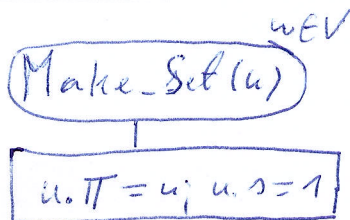 u∈V
Make_Set(u)
u.π = u; u.s = 1